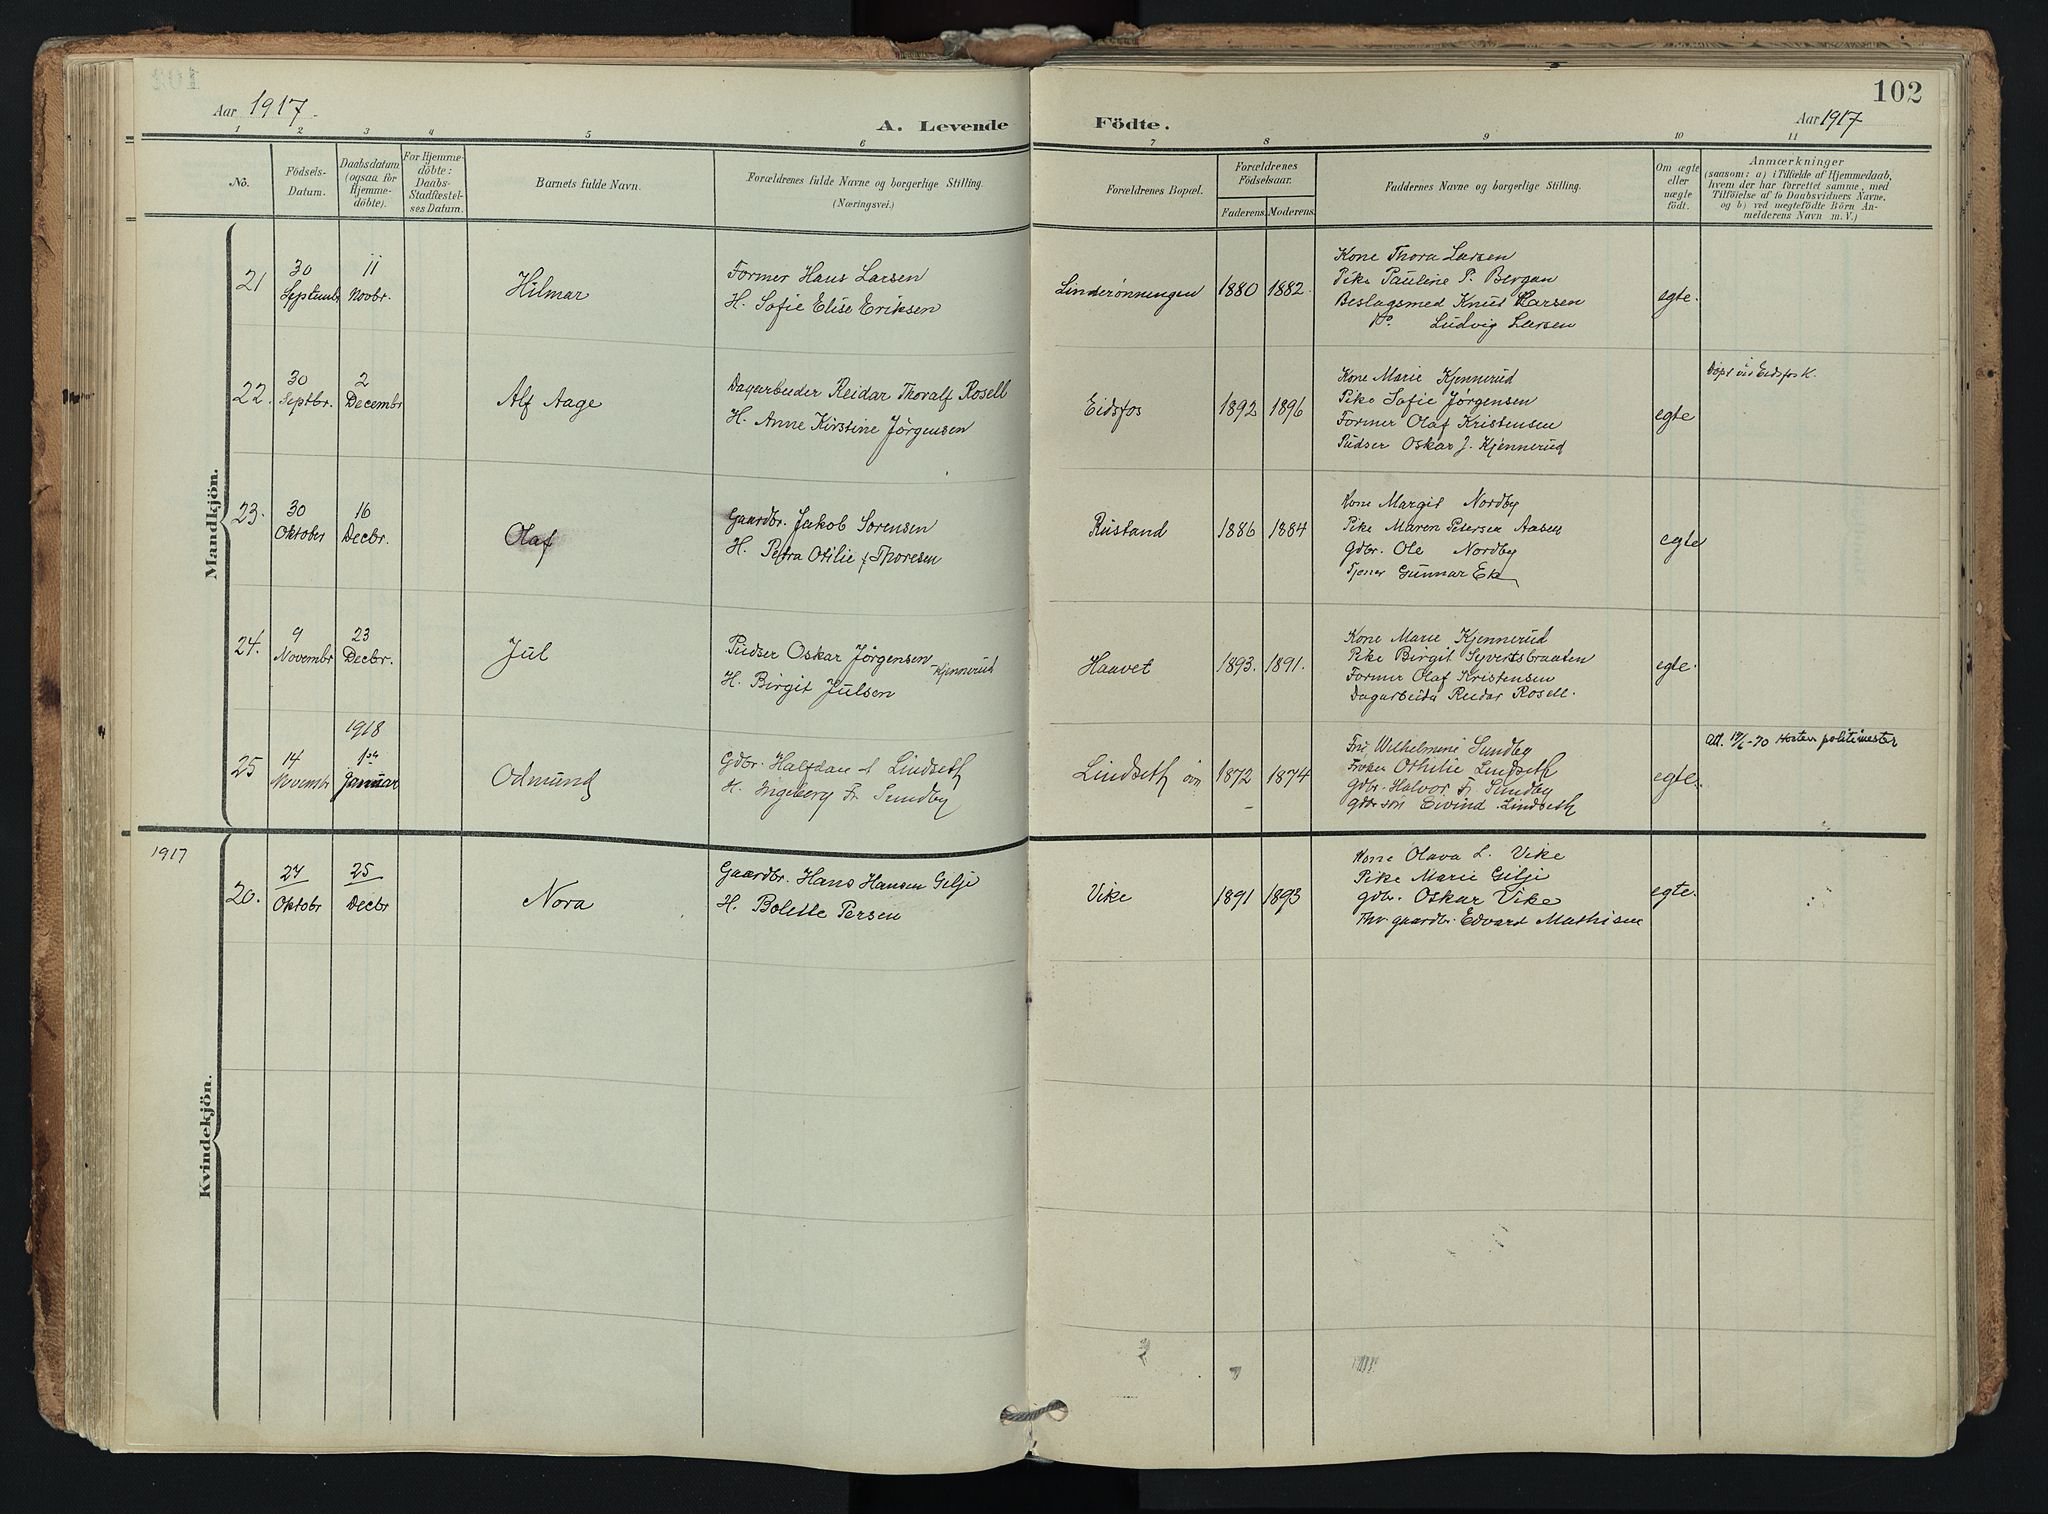 102
Aar 1917.
A. Levende Födte.
Aar 1917
1 2 3 4 5 6 7 8 9 10 11
No.
Födsels-Datum.
Daabsdatum (ogsaa for Hjemmedöbte).
For Hjemmedöbte: Daabs-Stadfæstelses Datum.
Barnets fulde Navn.
Forældrenes fulde Navne og borgerlige Stilling.
(Næringsvei.)
Forældrenes Bopæl.
Forældrenes Födselsaar.
Faderens. Moderens.
Faddernes Navne og borgerlige Stilling.
Om ægte eller uægte födt.
Anmærkninger
(saasom: a) i Tilfælde af Hjemmedaab,
hvem der har forrettet samme, med
Tilföielse af to Daabsvidners Navne,
og b) ved uægtefödte Börn Anmelderens Navn m. V.)
Mandkjön.
21 30 Septembr 11 Novbr. Hilmar
Former Hans Larsen
H. Sofie Elise Eriksen
Linderønningen 1880 1882.
Kone Thora Larsen
Pike Pauline P. Bergan
Beslagsmed Knut Larsen
Do Ludvig Larsen
egte.
22. 30 Septbr. 2 Decembr Alf Aage
Dagarbeider Reidar Thoralf Rosell
H. Anne Kirstine Jørgensen
Eidsfos 1892 1896
Kone Marie Kjennerud
Pike Sofie Jørgensen
Former Olaf Kristensen
Pudser Oskar J. Kjennerud
egte
Døpt i Eidsfos K.
23. 30 Oktober 16 Decbr. Olaf
Gaardbr. Jakob Sorensen
H. Petra Otilie f Thoresen
Rustand 1886 1884
Kone Margit Nordby
Pike Maren Petersen Aasen
Gdbr. Ole Nordby
Tjener Gunnar Ek
egte
24. 9 Novembr 23 Decbr. Jul
Pudser Oskar Jørgensen -Kjennerud
H. Birgit Julsen
Haavet 1893. 1891.
Kone Marie Kjennerud
Pike Birgit Syvertsbraaten
Former Olaf Kristensen
Dagarbeider Reidar Rosell.
egte.
25 14 Novembr 1918 1ste Januar Odmund
Gdbr. Halfdan Lindseth
H. Ingeborg Fr. Sundby
Lindseth øvr 1872 1874
Fru Wilhelmine Sundby
Frøken Othilie Lindseth
Gdbr. Halvor Fr. Sundby
Gdbr søn Eivind Lindseth
egte.
Att. 17/6-70 Horten politimester
1917
Kvindekjön.
20. 27 Oktobr 25 Decbr Nora
Gaardbr. Hans Hansen Gilje
H. Bolette Persen
Vike 1891 1893
Kone Olava L. Vike
Pike Marie Gilje
gdbr. Oskar Vike
Fhv. gaardbr. Edvard Mathisen
egte.